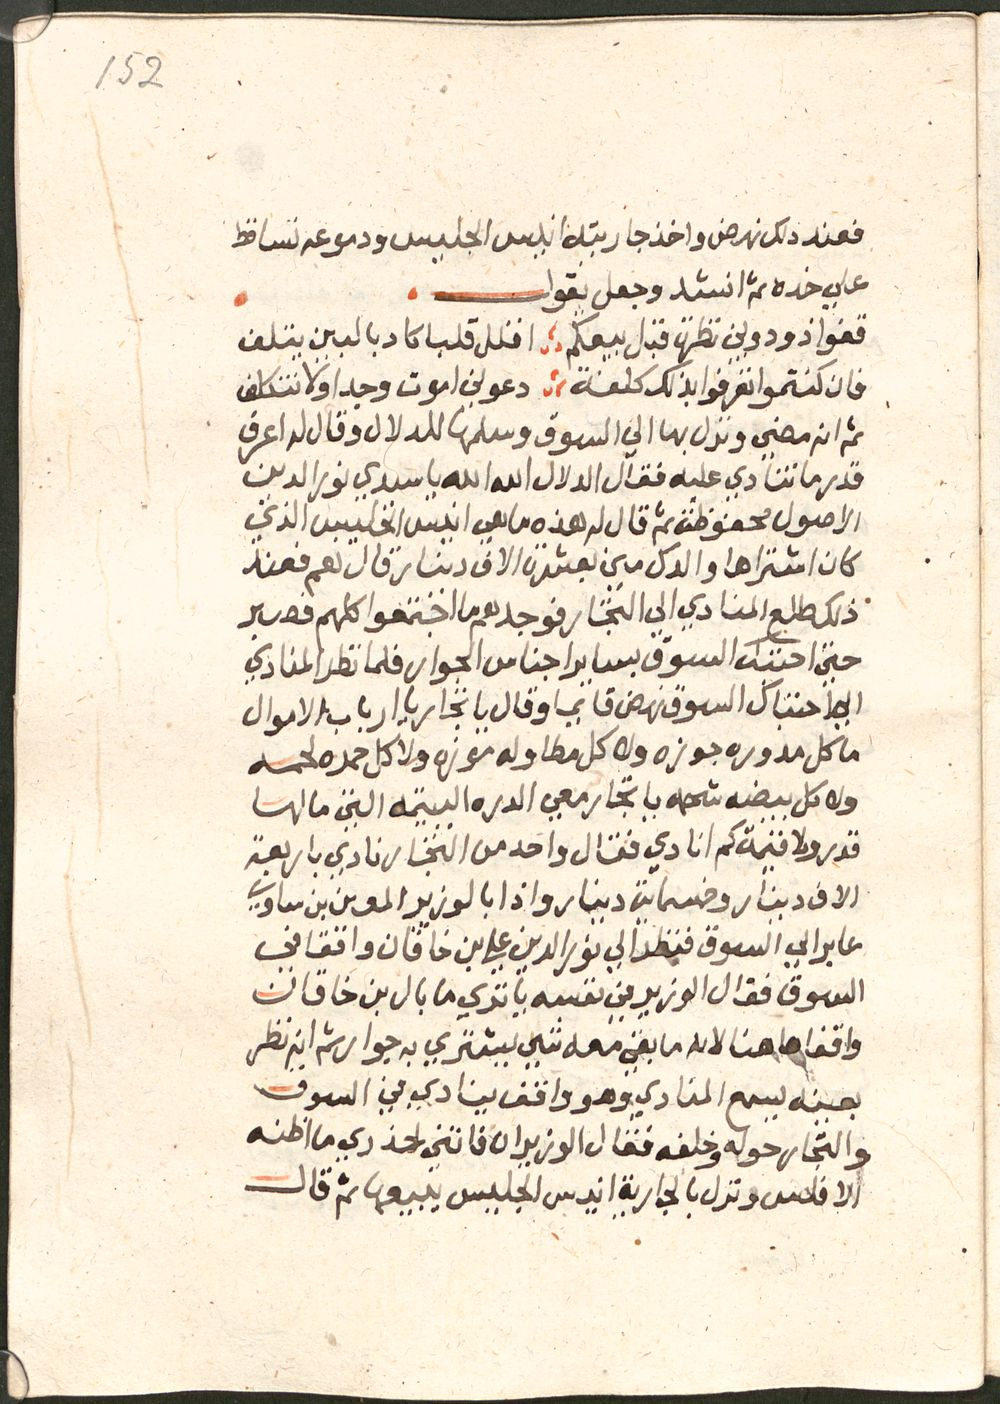 152
فعند ذلك نهض واخذ جاريته انيس الجليس ودموعه تساقط
علي خده ثم انشد وجعل يقول
قفوا زودوني نظرة قبل بينكم افلل قلبا كاد بالبين يتلف
فان كنتموا تعرفوا بذلك كلفة دعوني اموت وجدا ولا تتكلف
ثم انه مضي ونزل بها الي السوق وسلمها للدلال وقال له اعرف
قدر ما تنادي عليه فقال الدلال الله الله يا سيدي نور الدين
الاصول محفوظة ثم قال له هذه ما هي انيس الجليس الذي
كان اشتراها والدك مني بعشرة الاف دينار قال نعم فعند
ذلك طلع المنادي الي التجار فوجدهم ما اجتمعوا كلهم فصبر
حتي احتبك السوق بساير اجناس الجوار فلما نظر المنادي
الي احتباك السوق نهض قايما وقال يا تجار يا ارباب الاموال
ما كل مدوره جوزه ولا كل مطاوله موزه ولا كل حمره لحمه
ولا كل بيضه شحمه يا تجار معي الدره اليتيمه التي مالها
قدر ولا قيمة كم انادي فقال واحد من التجار نادي باربعة
الاف دينار وخمسماية دينار واذا بالوزير المعين بن ساوي
عابر الي السوق فنظر الي نور الدين علي بن خاقان واقفا في
السوق فقال الوزير في نفسه يا تري ما بال بن خاقان
واقفا هاهنا لانه ما بقي معه شي يشتري به جوار ثم انه نظر
بعينه يسمع المنادي وهو واقف ينادي في السوق
والتجار حوله وخلفه فقال الوزير ان فاتني حذري ما اظنه
الا فلس ونزل بالجارية انيس الجليس يبيعها ثم قال